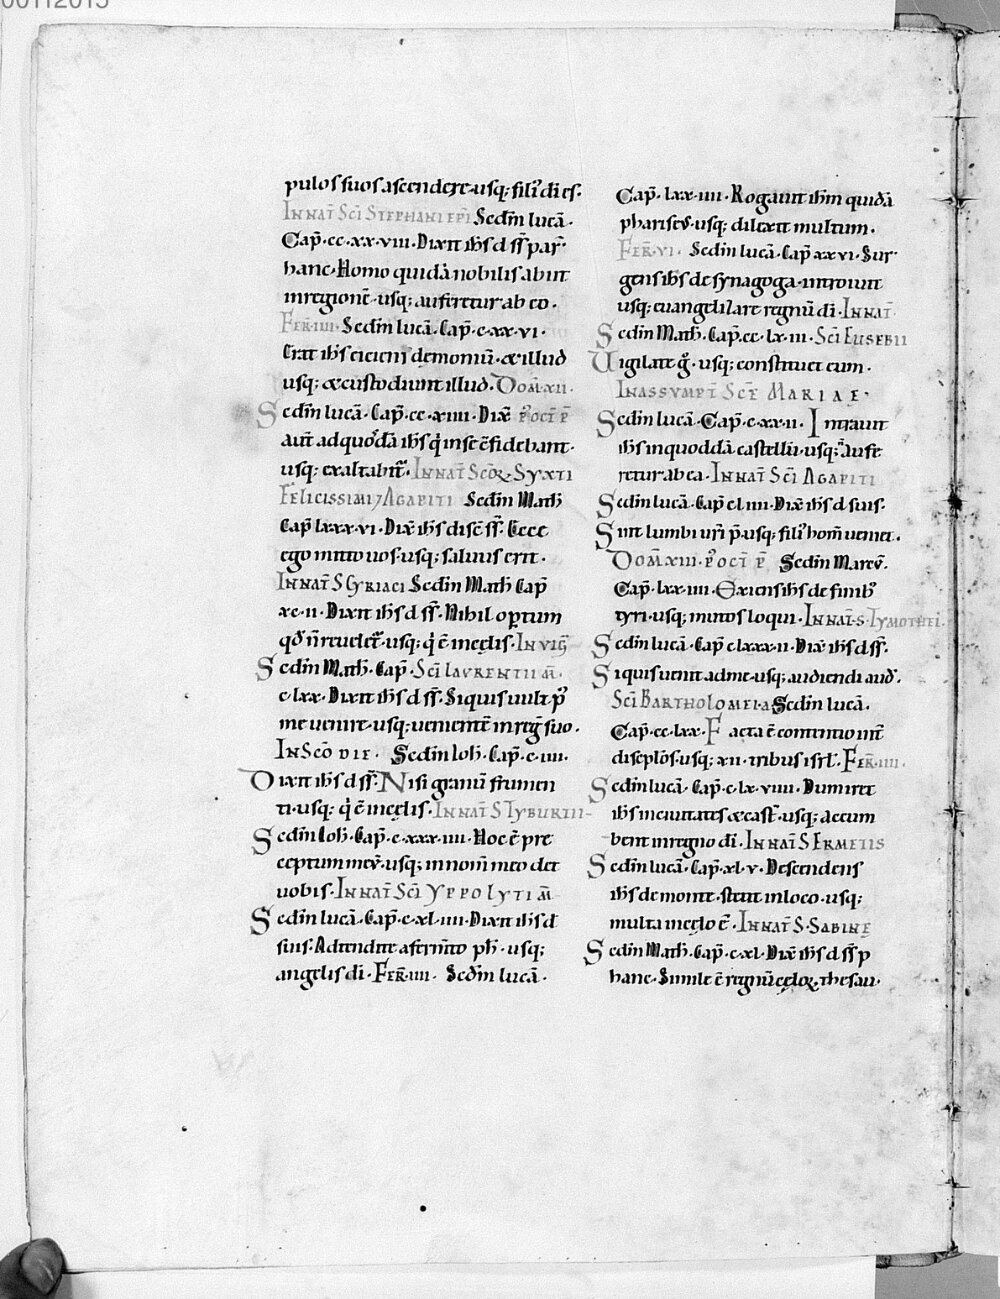 00112015
pulos suos ascendere·usq; filiꝰ di es.
IN NAT̄ SC̄I STEPHANI EP̄I Sedm̄ lucā·
Cap̄·cc·xx·viii·Dixit ih̄s d ss̄ par̄
hanc·Homo quidā nobilis abiit
in regionē·usq; auferetur ab eo·
FER̄·IIII·Sedm̄ lucā·Cap̄·c·xx·vi·
Erat ih̄s eiciens demoniū·& illud
usq; & custodiunt illud·DOM̄·XII·
Sedm̄ lucā·Cap̄·cc·xiiii·Dix̄ POST P̄
aut̄ ad quosdā ih̄s q̇ in se c̄fidebant·
usq; exaltabit᷑·IN NAT̄ SCŌꝜ·SYXTI
FELICISSIMI 7 AGAPITI Sedm̄ Math̄
Cap̄ lxxx·vi·Dix̄ ih̄s disc̄ ss̄·Ecce
ego mitto uos·usq; saluus erit·
IN NAT̄ S CYRIACI Sedm̄ Math̄ Cap̄
xc·ii·Dixit ih̄s d ss̄·Nihil opertum
qđ n̄ reuelet᷑·usq; q̇ ē in cęlis·IN VIG̅
Sedm̄ Math̄·Cap̄·SC̄I LAVRENTII M̄·
c·lxx·Dixit ih̄s d ss̄·Siquis uult p̄
me uenire·usq; uenientē in reḡ suo·
IN SCŌ DIE· Sedm̄ Ioh̄·Cap̄·c·iiii·
Dixit ih̄s d ss̄·Nisi granū frumen
ti·usq; q̇ ē in cęlis·IN NAT̄ S TYBURTII·
Sedm̄ Ioh̄·Cap̄·c·xxx·iiii·Hoc ē pre
ceptum meū·usq; in nom̄ meo det
uobis·IN NAT̄ SC̄I YPPOLYTI M̄
Sedm̄ lucā·Cap̄·c·xl·iiii·Dixit ih̄s d
suis·Adtendite a fermto ph̄·usq;
angelis di·FER̄·IIII· Sedm̄ lucā·
Cap̄·lxx·iiii·Rogauit ih̄m quidā
phariseꝰ·usq; dilexit multum·
FER̄·VI· Sedm̄ lucā·Cap̄ xxvi·Sur
gens ih̄s de synagoga·introiuit
usq; euangelizare regnū di·IN NAT̄
Sedm̄ Math̄·Cap̄·cc·lx·iii·SC̄I EUSEBII
Uigilate ḡ·usq; constituet eum·
IN ASSVMPT̄ SCĒ MARIAE·
Sedm̄ lucā·Cap̄·c·xx·ii·Intrauit
ih̄s in quoddā castellū·usq; aufe
retur ab ea·IN NAT̄ SC̄I AGAPITI
Sedm̄ lucā·Cap̄ cl·iiii·Dix̄ ih̄s d suis·
Sint lumbi ur̄i p̄·usq; filiꝰ hom̄ ueniet·
DOM̄ XIII·POST P̄ Sedm̄ Marcū·
Cap̄·lxx·iiii·Exiens ih̄s de finibꝰ
tyri·usq; mutos loqui·IN NAT̄·S·TYMOTHEI·
Sedm̄ lucā·Cap̄ c·lxxx·ii·Dix̄ ih̄s d ss̄·
Siquis uenit ad me·usq; audiendi aud̄·
SC̄I BARTHOLOMEI·A Sedm̄ lucā·
Cap̄·cc·lxx·Facta ē contentio int̄
disciplōs·usq; xii·tribus isrl̄·FER̄·IIII·
Sedm̄ lucā·Cap̄·c·lx·viiii·Dum iret
ih̄s in ciuitates & cast̄·usq; accum
bent in regno di·IN NAT̄ S ERMETIS
Sedm̄ lucā·Cap̄·xl·v·Descendens
ih̄s de monte·stetit in loco·usq;
multa in cęlo ē·IN NAT̄ S·SABINE
Sedm̄ Math̄·Cap̄·c·xl·Dix̄ ih̄s d ss̄ p
hanc·Simile ē regnū cęloꝝ·thesau·